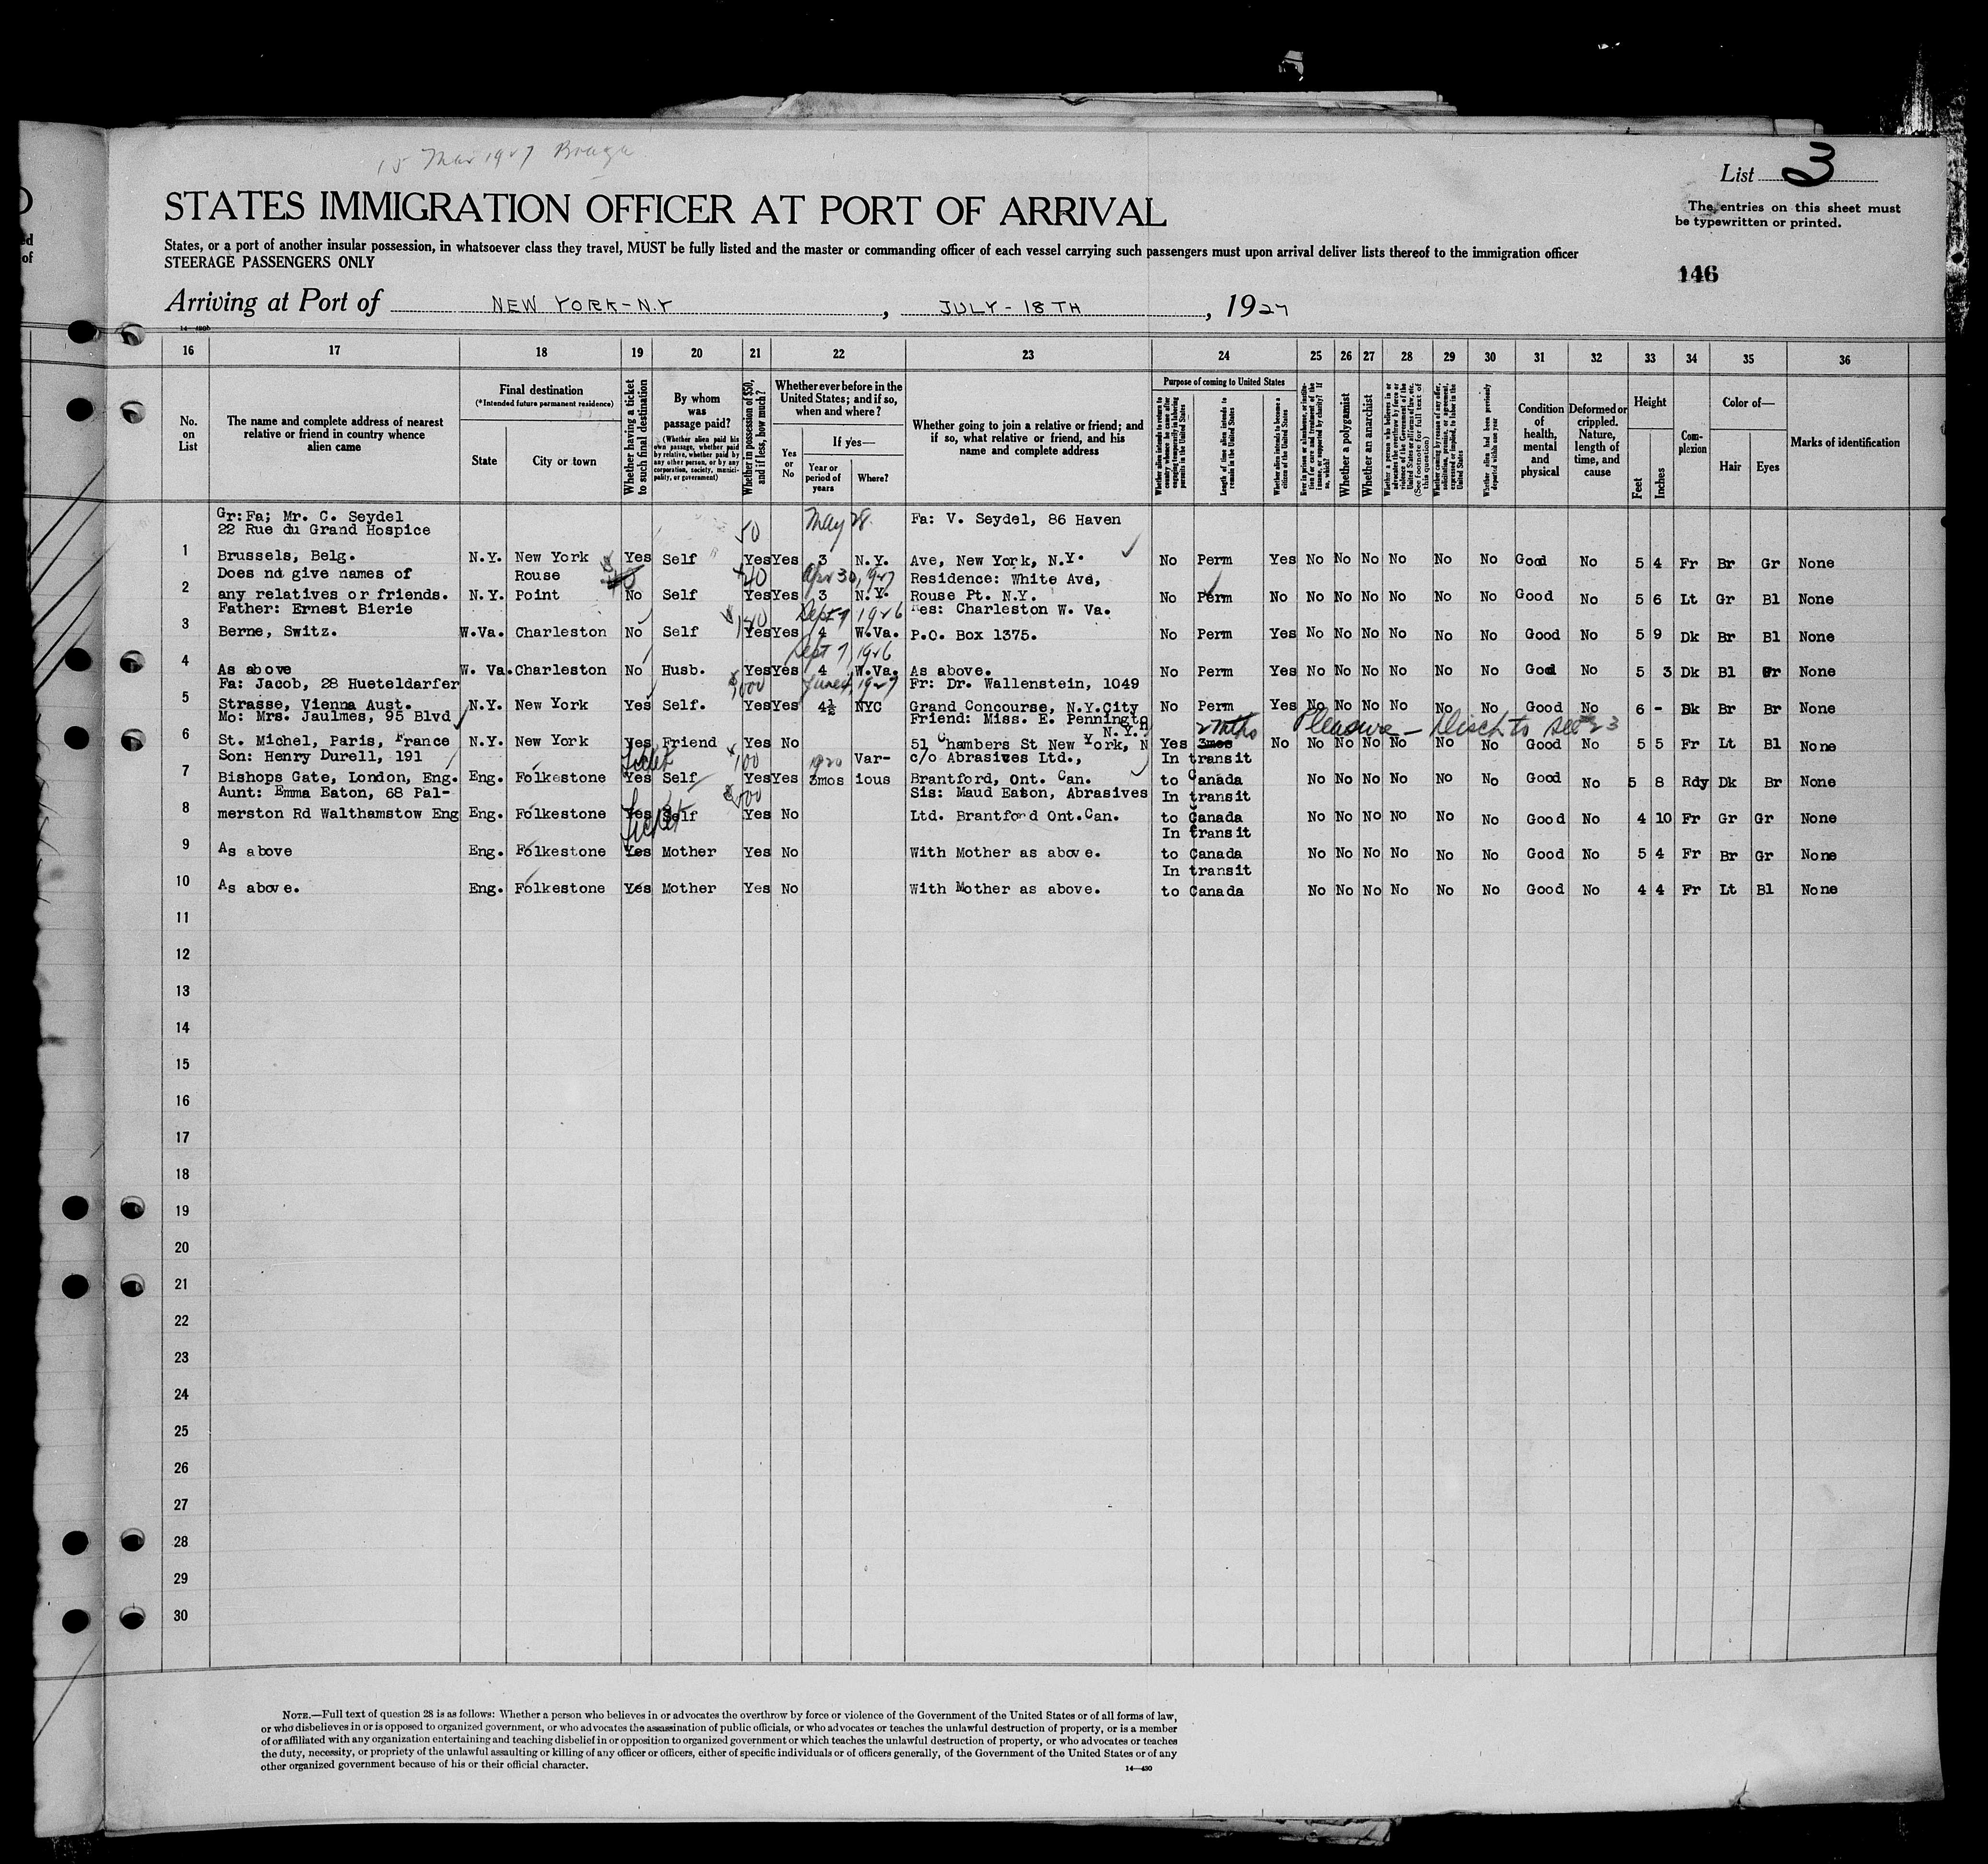 15 Mar 1927 Braga
List 3
STATES IMMIGRATION OFFICER AT PORT OF ARRIVAL
The entries on this sheet must
be typewritten or printed.
States, or a port of another insular possession, in whatsoever class they travel, MUST be fully listed and the master or commanding officer of each vessel carrying such passengers must upon arrival deliver lists thereof to the immigration officer
STEERAGE PASSENGERS ONLY
146
Arriving at Port of NEW YORK-N.Y , JULY-18TH , 1927
16 17 18 19 20 21 22 23 24 25 26 27 28 29 30 31 32 33 34 35 36
No. on List
The name and complete address of nearest relative or friend in country whence alien came
Final destination
(*Intended future permanent residence)
State
City or town
Whether having a ticket to such final destination
By whom was passage paid?
(Whether alien paid his own passage, whether paid by relative, whether paid by any other person, or by any corporation, society, municipality, or government)
Whether in possession of $50, and if less, how much?
Whether ever before in the United States; and if so, when and where?
Yes or No
If yes—
Year or period of years
Where?
Whether going to join a relative or friend; and if so, what relative or friend, and his name and complete address
Purpose of coming to United States
Length of time alien intends to remain in the United States
Whether alien intends to become a citizen of the United States
Whether a polygamist
Whether an anarchist
Condition of health, mental and physical
Deformed or crippled. Nature, length of time, and cause
Height
Feet
Inches
Complexion
Color of—
Hair
Eyes
Marks of identification
Gr:Fa; Mr. C. Seydel
22 Rue du Grand Hospice 50 May 28. Fa: V. Seydel, 86 Haven
1 Brussels, Belg. N.Y. New York Yes Self Yes Yes 3 N.Y. Ave, New York, N.Y. No Perm Yes No No No No No No Good No 5 4 Fr Br Gr None
Does nd give names of Rouse 40 Apr 30, 1927 Residence: White Ave,
2 any relatives or friends. N.Y. Point No Self Yes Yes 3 N.Y. Rouse Pt. N.Y. No Perm No No No No No No No Good No 5 6 Lt Gr Bl None
Father: Ernest Bierie $140 Sept 7 1926 Res: Charleston W. Va.
3 Berne, Switz. W.Va. Charleston No Self Yes Yes 4 W.Va. P.O. Box 1375. No Perm Yes No No No No No No Good No 5 9 Dk Br Bl None
Sept 7, 1926
4 As above W. Va. Charleston No Husb. Yes Yes 4 W.Va. As above. No Perm Yes No No No No No No Good No 5 3 Dk Bl None
Fa: Jacob, 28 Hueteldarfer June 4, 1927 Fr: Dr. Wallenstein, 1049
5 Strasse, Vienna Aust. N.Y. New York Yes Self. Yes Yes 4½ NYC Grand Concourse, N.Y.City No Perm Yes No No No No No No Good No 6 - Dk Br Br None
Mo: Mrs. Jaulmes, 95 Blvd Friend: Miss. E. Pennington N.Y. 2 mths Pleasure – Disch to see #23
6 St. Michel, Paris, France N.Y. New York Yes Friend Yes No 51 Chambers St New York, N Yes 3mos No No No No No No No Good No 5 5 Fr Lt Bl None
Son: Henry Durell, 191 Ticket $100 1920 Var- c/o Abrasives Ltd., In transit
7 Bishops Gate, London, Eng. Eng. Folkestone Yes Self Yes Yes 3mos ious Brantford, Ont. Can. to Canada No No No No No No Good No 5 8 Rdy Dk Br None
Aunt: Emma Eaton, 68 Pal- Sis: Maud Eason, Abrasives In transit
8 merston Rd Walthamstow Eng Eng. Folkestone Yes Self Yes No Ltd. Brantford Ont.Can. to Canada No No No No No No Good No 4 10 Fr Gr Gr None
Ticket In transit
9 As above Eng. Folkestone Yes Mother Yes No With Mother as above. to Canada No No No No No No Good No 5 4 Fr Br Gr None
In transit
10 As above. Eng. Folkestone Yes Mother Yes No With Mother as above. to Canada No No No No No No Good No 4 4 Fr Lt Bl None
11
12
13
14
15
16
17
18
19
20
21
22
23
24
25
26
27
28
29
30
NOTE.—Full text of question 28 is as follows: Whether a person who believes in or advocates the overthrow by force or violence of the Government of the United States or of all forms of law,
or who disbelieves in or is opposed to organized government, or who advocates the assassination of public officials, or who advocates or teaches the unlawful destruction of property, or is a member
of or affiliated with any organization entertaining and teaching disbelief in or opposition to organized government or which teaches the unlawful destruction of property, or who advocates or teaches
the duty, necessity, or propriety of the unlawful assaulting or killing of any officer or officers, either of specific individuals or of officers generally, of the Government of the United States or of any
other organized government because of his or their official character.
14—430